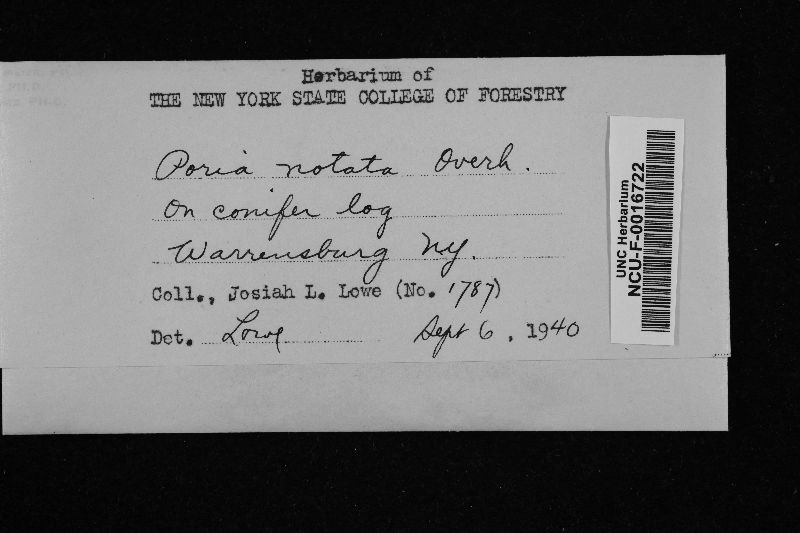 Herbarium of
THE NEW YORK STATE COLLEGE OF FORESTRY
Poria notata Overh.
On conifer log
Warrensburg NY.
Coll., Josiah L. Lowe (No. 1787)
Det. Lowe Sept 6, 1940
UNC Herbarium
NCU-F-0016722